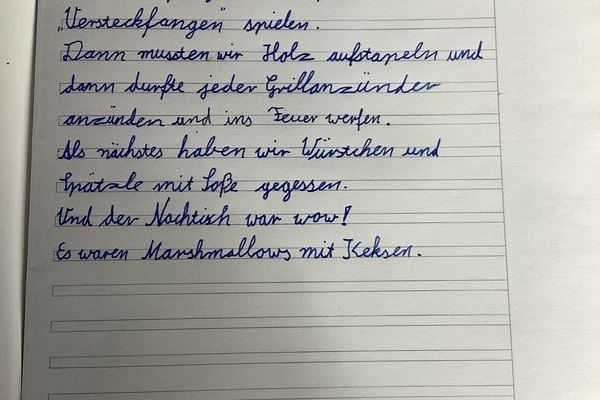 „Versteckfangen" spielen.
Dann mussten wir Holz aufstapeln und
dann durfte jeder Grillanzünder
anzünden und ins Feuer werfen.
Als nächstes haben wir Würstchen und
Spätzle mit Soße gegessen.
Und der Nachtisch war wow!
Es waren Marshmallows mit Keksen.